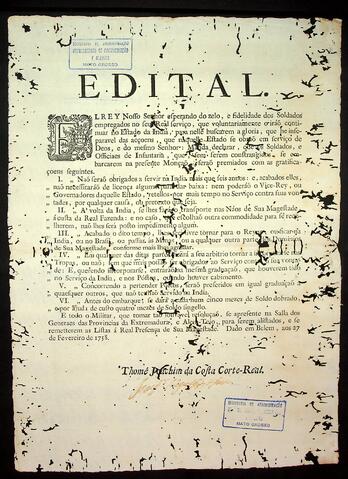 SECRETARIA DE ADMINISTRAÇÃO
MATO GROSSO
EDITAL.
ELREY Nosso Senhor esperando do zelo, e fidelidade dos Soldados
empregados no seu Real serviço, que voluntariamente irão conti-
nuar no Estado da India, para nelle buscarem a gloria, que he inse-
paravel das acçoens, que naquelle Estado se obrão em serviço de
Deos, e do mesmo Senhor: Manda declarar, que os Soldados, e
Officiaes de Infantaria, que sem serem constrangidos, se em-
barcarem na presente Monção, serão premiados com as gratifica-
çoens seguintes.
I. Não serão obrigados a servir na India mais que seis annos: e, acabados elles,
não necessitarão de licença alguma, nem baixa: nem poderão o Vice-Rey, ou
Governadores daquelle Estado, retellos por mais tempo no Serviço contra suas von-
tades, por qualquer causa, ou pretexto que seja.
II. A' volta da India, se lhes fará o Transporte nas Náos de Sua Magestade,
á custa da Real Fazenda: e no caso, que escolhão outra commodidade para se re-
colherem, não lhes será posto impedimento algum.
III. Acabado o dito tempo, será livre tornar para o Reyno, ou ficar
India, ou no Brasil, ou passar a Minas, ou a qualquer outra parte dos Dominios
de Sua Magestade, conforme mais lhe convier.
IV. Em qualquer das ditas partes, será a seu arbitrio tornar a servir na
Tropa, ou não; sem que seja
de: E, querendo incorporarse, entrarão na mesma graduação, que houverem tido
no Serviço da India, e nos Postos, quando houver cabimento.
V. Concorrendo a pertender Postos, serão preferidos em igual graduação a
quaesquer outros, que não tenhão servido na India.
VI. Antes do embarque, se dará a cada hum cinco mezes de Soldo dobrado,
por ajuda de custo quatro mezes de Soldo singello.
E todo o Militar, que tomar esta louvavel resolução, se apresente na Salla dos
Generaes das Provincias da Extremadura, e Alem-Tejo, para serem alistados, e se
remetterem as Listas á Real Presença de Sua Magestade. Dado em Belem, aos 27
de Fevereiro de 1758.
Thomé Joachim da Costa Corte-Real.
SECRETARIA DE ADMINISTRAÇÃO
MATO GROSSO